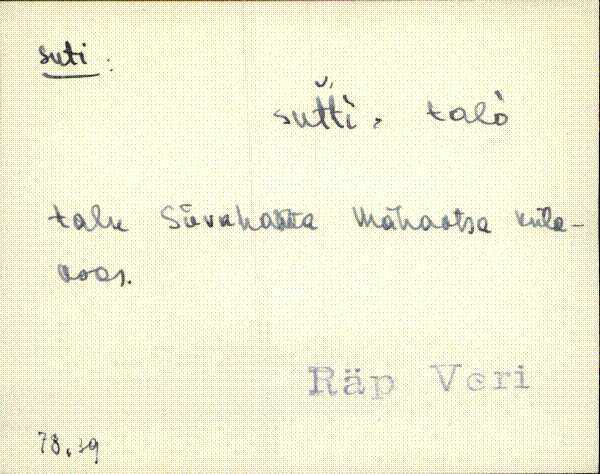 suti:
sut̆t̆i. talò
talu Süvahavva Mähaotsa küla-
koas.
Räp Veri
78.39